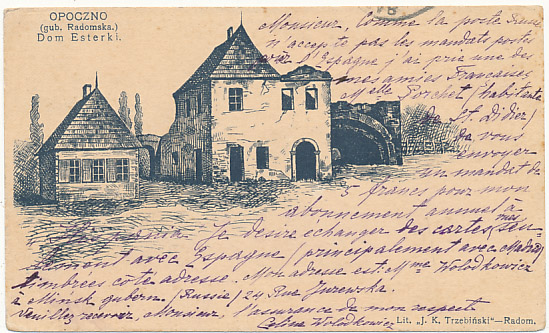 OPOCZNO
(gub. Radomska.)
Dom Esterki.
Monsieur, Comme la poste Russe
n'accepte pas les mandats postaux
avec l'Espagne j'ai prié une des
mes amies Françaises
Melle Porchet (habitante
de St. Didier)
de vous
envoyer
un mandat de
5 francs pour mon
abonnement annuel à mis
Je désire echanger des cartes seu-
lement avec Espagne (principalement avec Madrid)
timbrées côté adresse. Mon adresse est: Mme Wolodkowicz
à Minsk gubern. (Russie) 24 Rue Jurewska.
Veuillez recevoir, Monsieur, l'assurance de mon respect
Celina Wolodkowicz
Lit. „J. K. Trzebiński"—Radom.